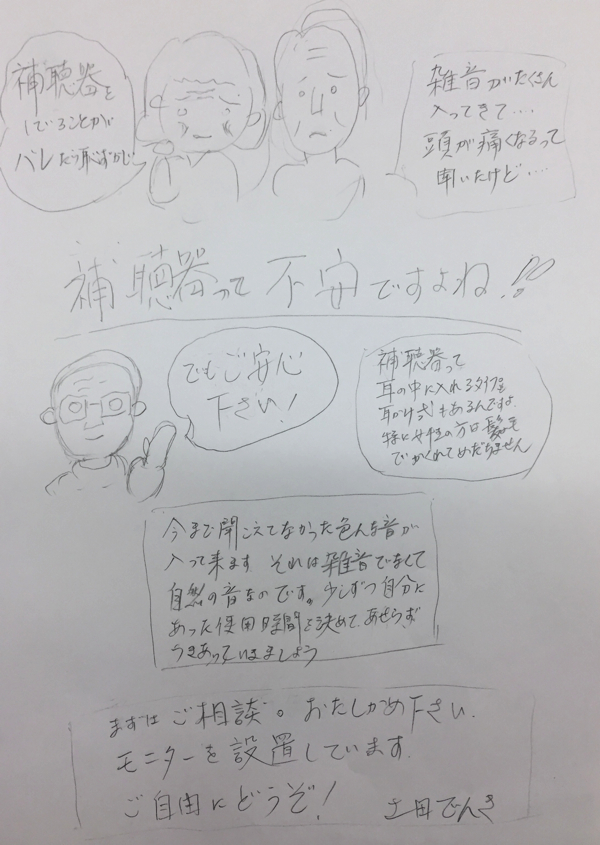 補聴器を
していることが
バレたら恥ずかし
雑音がたくさん
入ってきて‥‥
頭が痛くなるって
聞いたけど‥‥
補聴器って不安ですよね!!
でもご安心
下さい!
補聴器って
耳の中に入れるタイプと
耳かけ式もあるんですよ
特に女性の方は髪の毛
でかくれてめだちません
今まで聞こえてなかった色んな音が
入って来ます それは雑音でなくて
自然の音なのです。少しずつ自分に
あった使用時間を決めて、あせらず
つきあっていきましょう
まずはご相談。おたしかめ下さい。
モニターを設置しています。
ご自由にどうぞ!
土田でんき